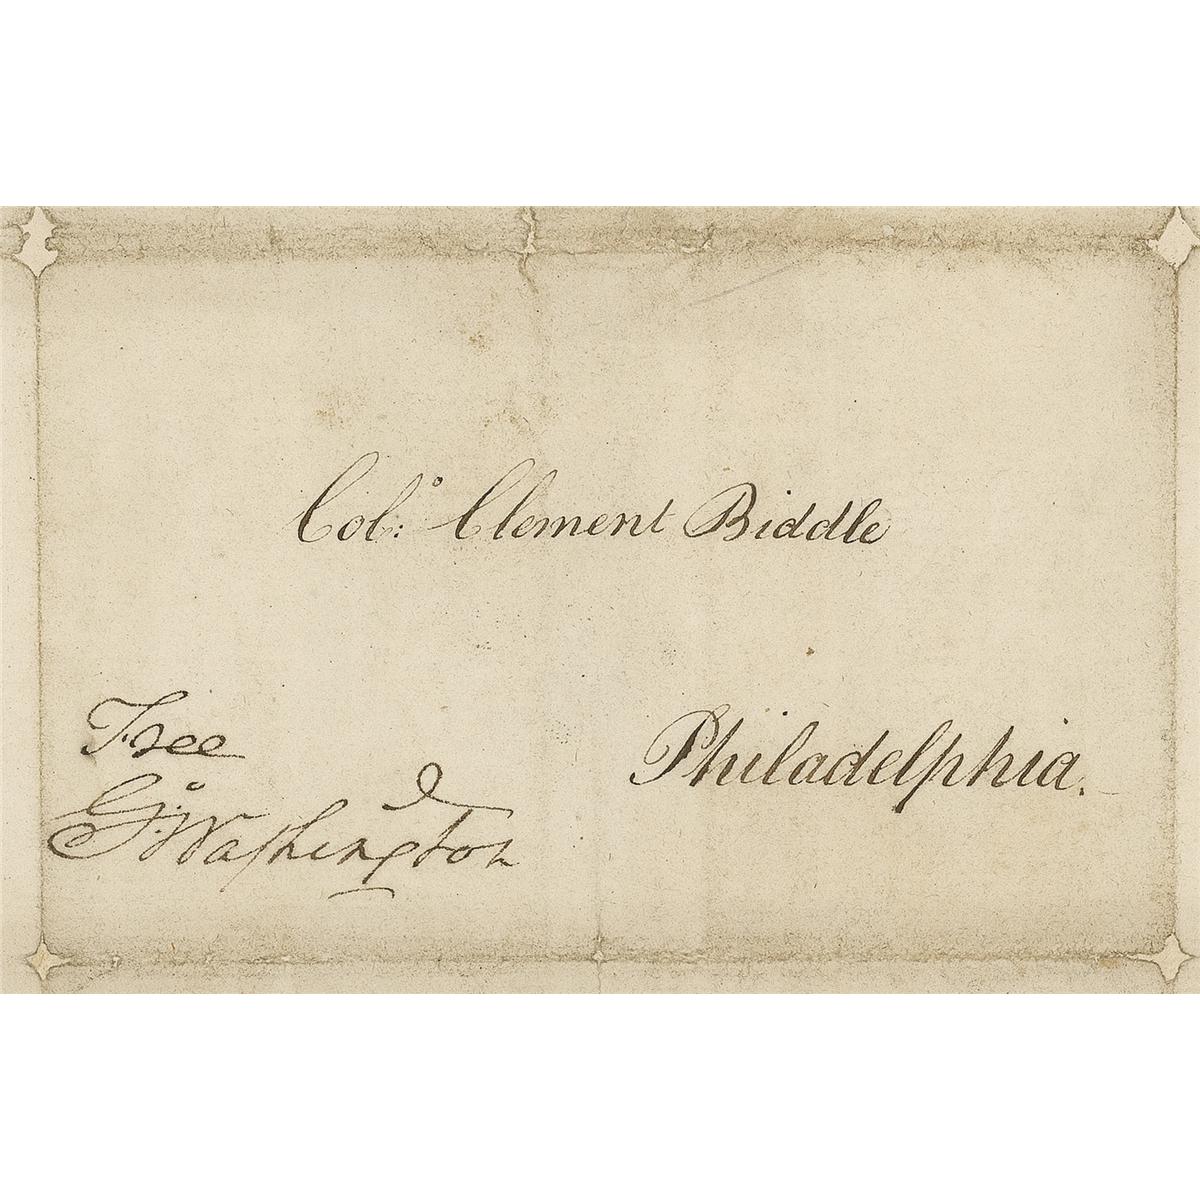 Col.º: Clement Biddle
Free
Philadelphia.
G:º Washington